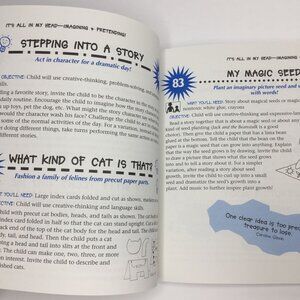 IT'S ALL IN MY HEAD—IMAGINING & PRETENDING!
STEPPING INTO A STORY
Act in character for a dramatic day!
OBJECTIVE: Child will use creative-thinking, problem-solving, and
ding a favorite story, invite the child to be the character in the story
daily routine. Encourage the child to imagine how the story character
up toys, pet the dog, etc. What might the story character say
would the character wash his face? Challenge the child to
some of the normal activities of the day. For a variation, instead
doing different things, take turns performing the same
stories.
WHAT KIND OF CAT IS THAT?
Fashion a family of felines from precut paper parts.
YOU'LL NEED: Large index cards folded and cut as shown, markers
OBJECTIVE: Child will use creative-thinking and language skills.
child with precut cat bodies, heads, and tails as shown. The
index card folded in half so that the cat can stand. Cut
back end of the top of the cat body for the head and tail. The
dy, tail, and head. Then the child puts a cat
ing a head and tail into slits at the front and
. The child can make one, two, three, or more
n interest. Invite the child to describe and
ished cats.
IT'S ALL IN MY HEAD—IMAGINING
83
MY MAGIC SEED
Plant an imaginary picture seed and
with words!
WHAT YOU'LL NEED: Story about magical seeds or
monitor; white glue, crayons
OBJECTIVE: Child will use creative-thinking and expressive-
Read a story to the child about a seed that grows
kind of seed planting (Jack and the Beanstalk is a good
choice). Then give the child a paper that has a bean
glued at the bottom. Tell the child that the bean on the
paper is a magic seed that can grow into anything. Explain
that the way the seed grows is by drawing. Invite the child
to draw a picture that shows what the seed grows
into and to tell a story about it. For a simpler
variation, after reading a story about seed
growth, invite the child to curl up into a small
seed and dramatize the seed's growth into a
plant. Add music to further inspire plant growth!
One clear idea is too precious
treasure to lose.
Caroline Gilman